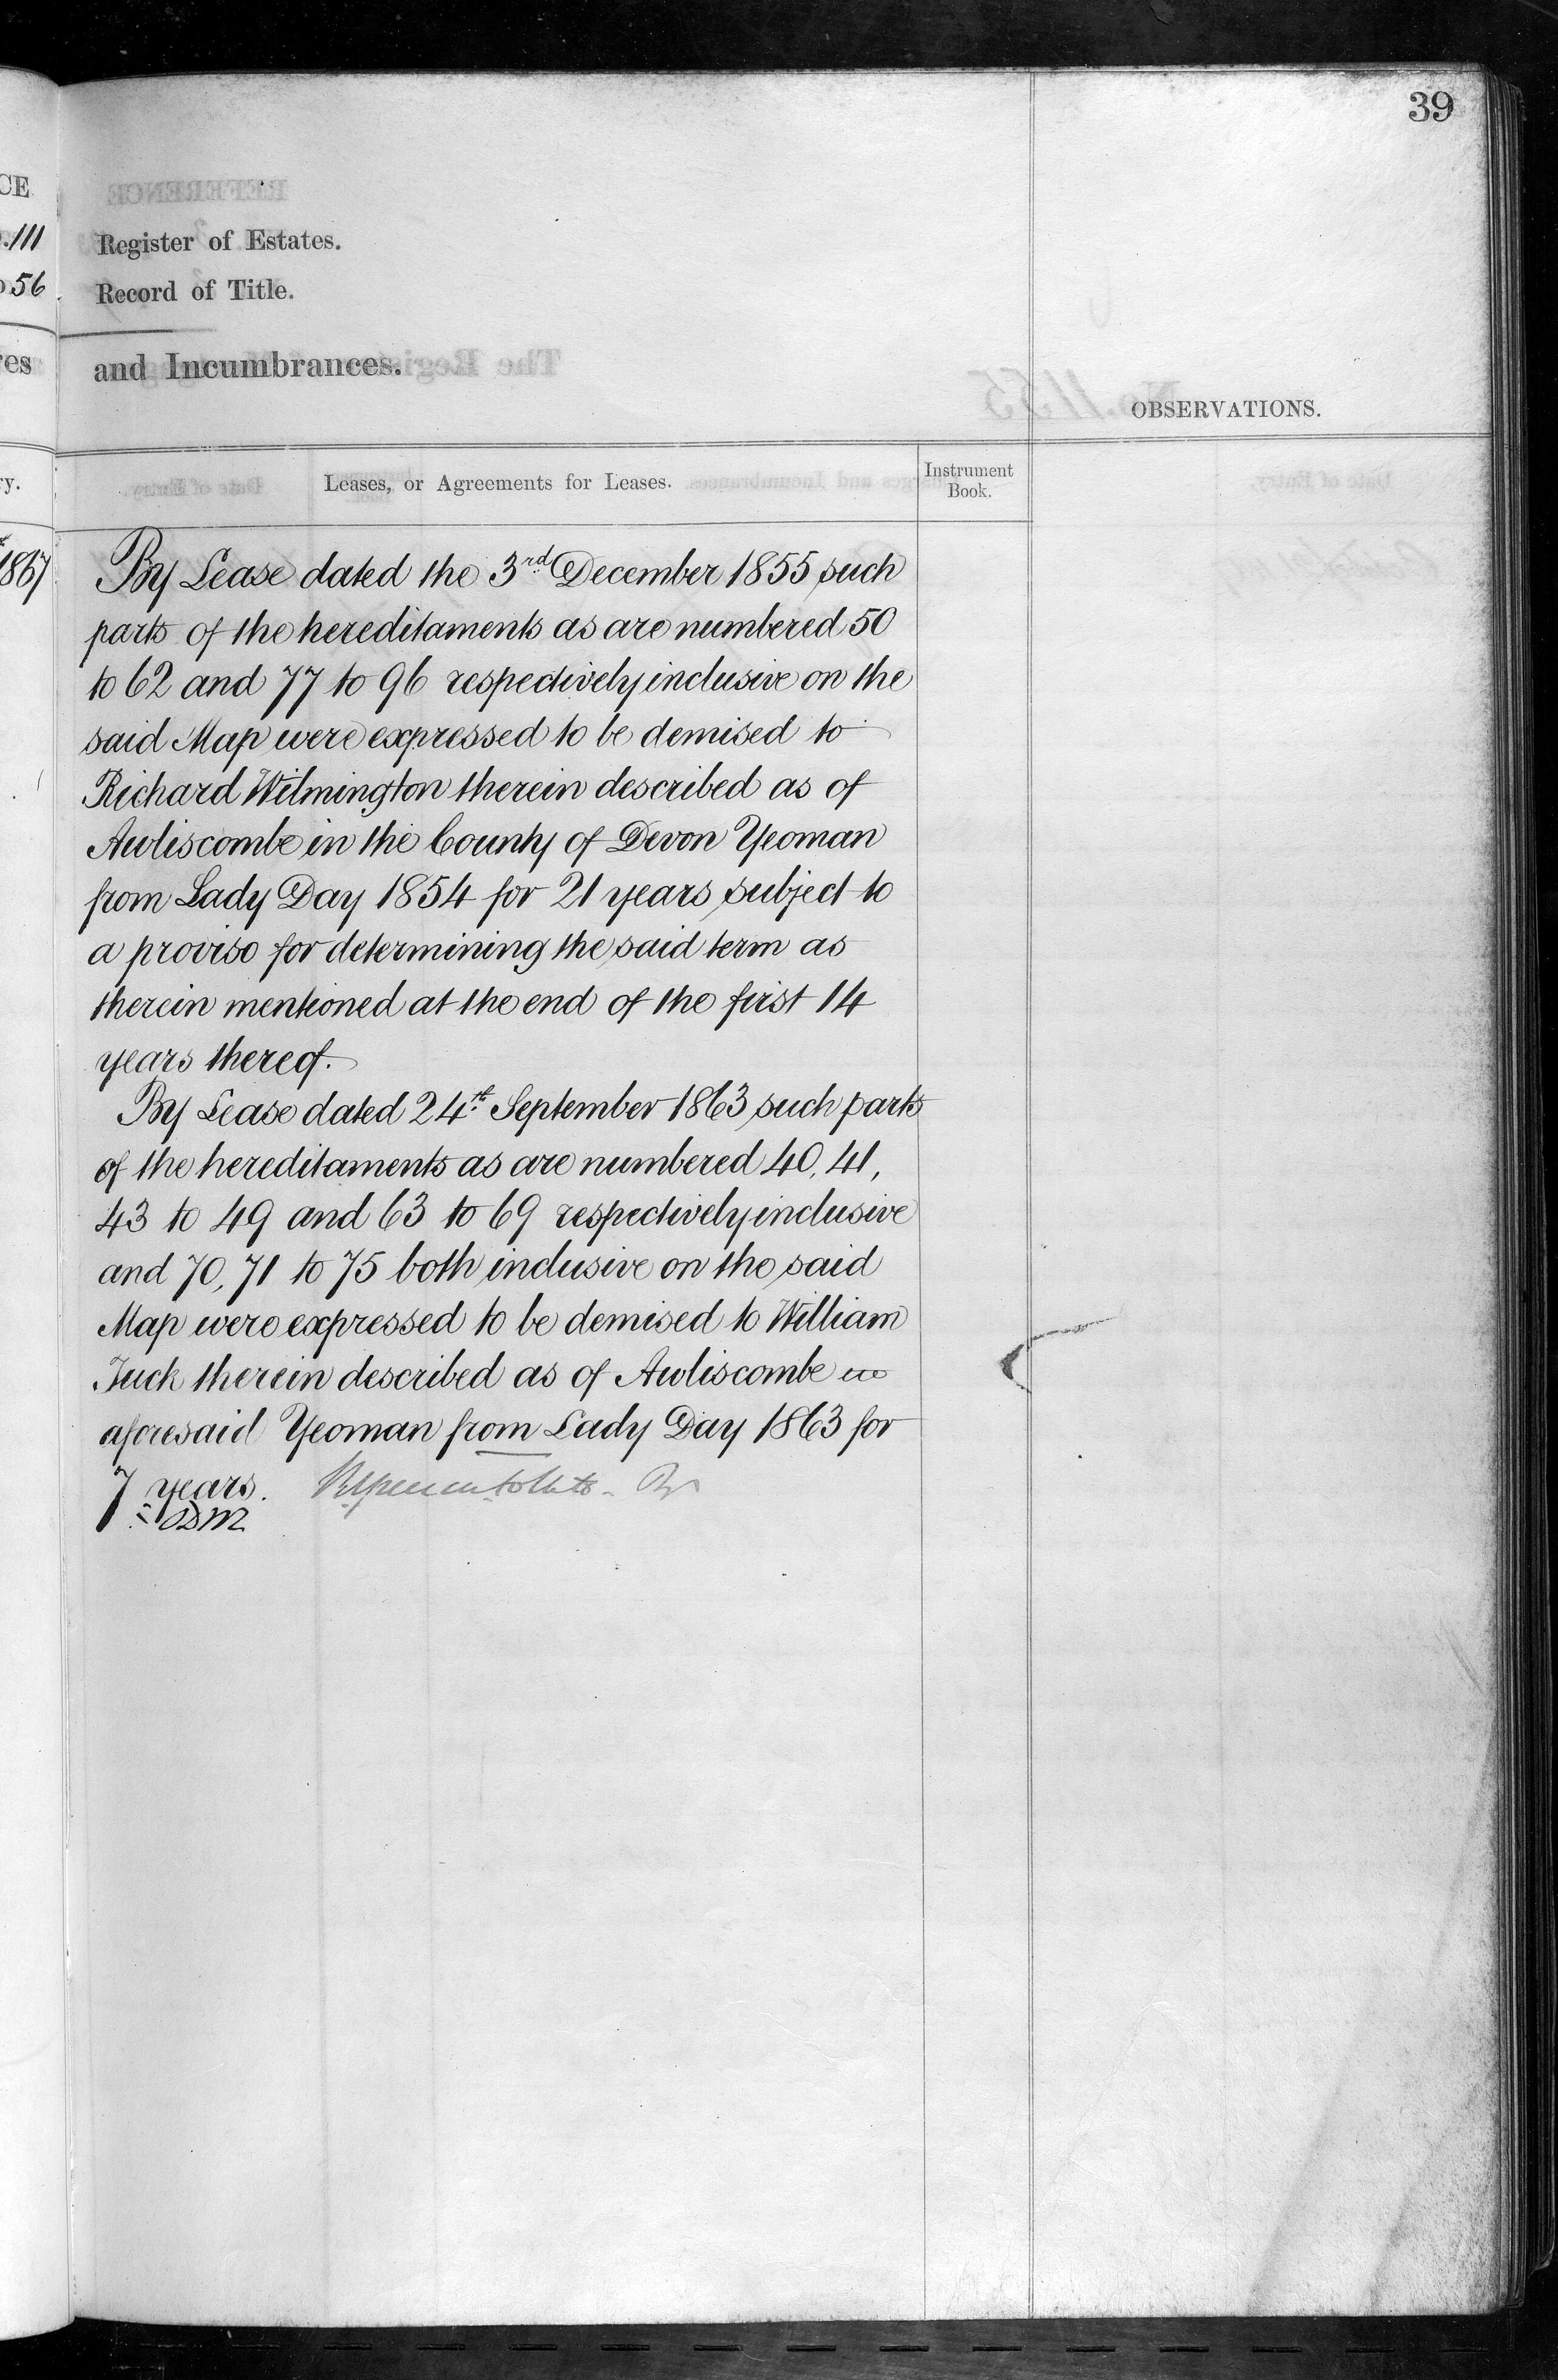 39
CE
.111
Register of Estates.
56
Record of Title.
res
and Incumbrances.
OBSERVATIONS.
ry.
Leases, or Agreements for Leases.
Instrument
Book.
1867
By Lease dated the 3rd December 1855 such
parts of the hereditaments as are numbered 50
to 62 and 77 to 96 respectively inclusive on the
said Map were expressed to be demised to
Richard Wilmington therein described as of
Awliscombe in the County of Devon Yeoman
from Lady Day 1854 for 21 years subject to
a proviso for determining the said term as
therein mentioned at the end of the first 14
years thereof.
By Lease dated 24th September 1863 such parts
of the hereditaments as are numbered 40, 41,
43 to 49 and 63 to 69 respectively inclusive
and 70, 71 to 75 both inclusive on the said
Map were expressed to be demised to William
Tuck therein described as of Awliscombe in
aforesaid Yeoman from Lady Day 1863 for
7 years.